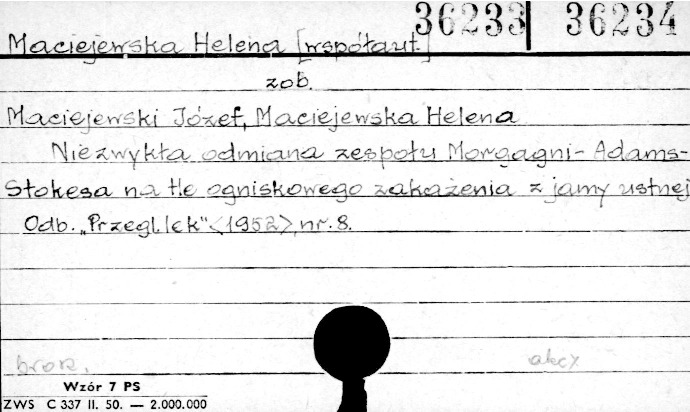 36233 36234
Maciejewska Helena [współaut.]
zob.
Maciejewski Józef, Maciejewska Helena
Niezwykła odmiana zespołu Morgagni-Adams-
Stokesa na tle ogniskowego zakażenia z jamy ustnej
Odb. „Przegl. lek" <1952>, nr. 8.
brosz. akcy
Wzór 7 PS
ZWS C 337 II. 50. — 2.000.000